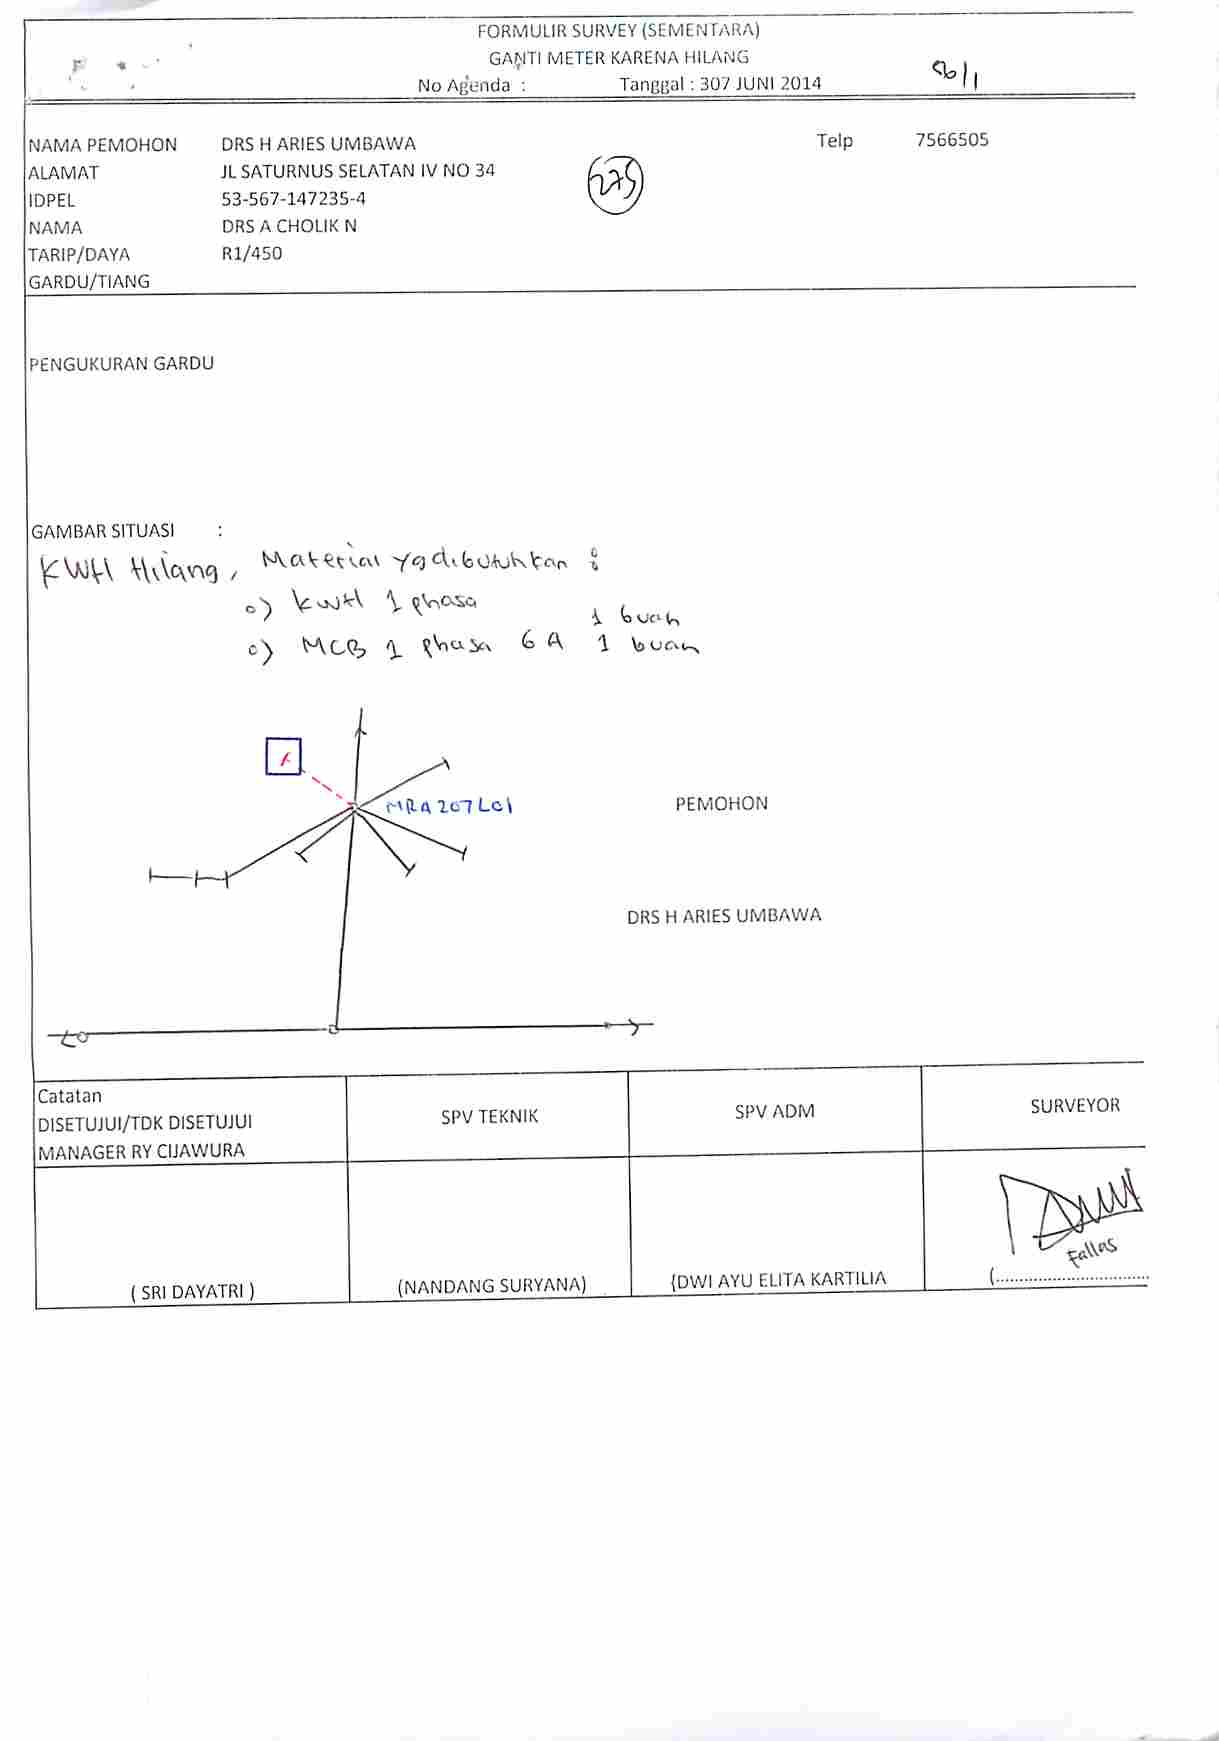 FORMULIR SURVEY (SEMENTARA)
GANTI METER KARENA HILANG
No Agenda : Tanggal : 307 JUNI 2014
NAMA PEMOHON DRS H ARIES UMBAWA Telp 7566505
ALAMAT JL SATURNUS SELATAN IV NO 34
275
IDPEL 53-567-147235-4
NAMA DRS A CHOLIK N
TARIP/DAYA R1/450
GARDU/TIANG
PENGUKURAN GARDU
GAMBAR SITUASI :
KWH Hilang, Material yg dibutuhkan :
o) kwH 1 phasa 1 buah
o) MCB 1 phasa 6 A 1 buah
MRA207L01
PEMOHON
DRS H ARIES UMBAWA
Catatan
DISETUJUI/TDK DISETUJUI
MANAGER RY CIJAWURA
SPV TEKNIK
SPV ADM
SURVEYOR
Fallas
( SRI DAYATRI )
(NANDANG SURYANA)
(DWI AYU ELITA KARTILIA
(..............................